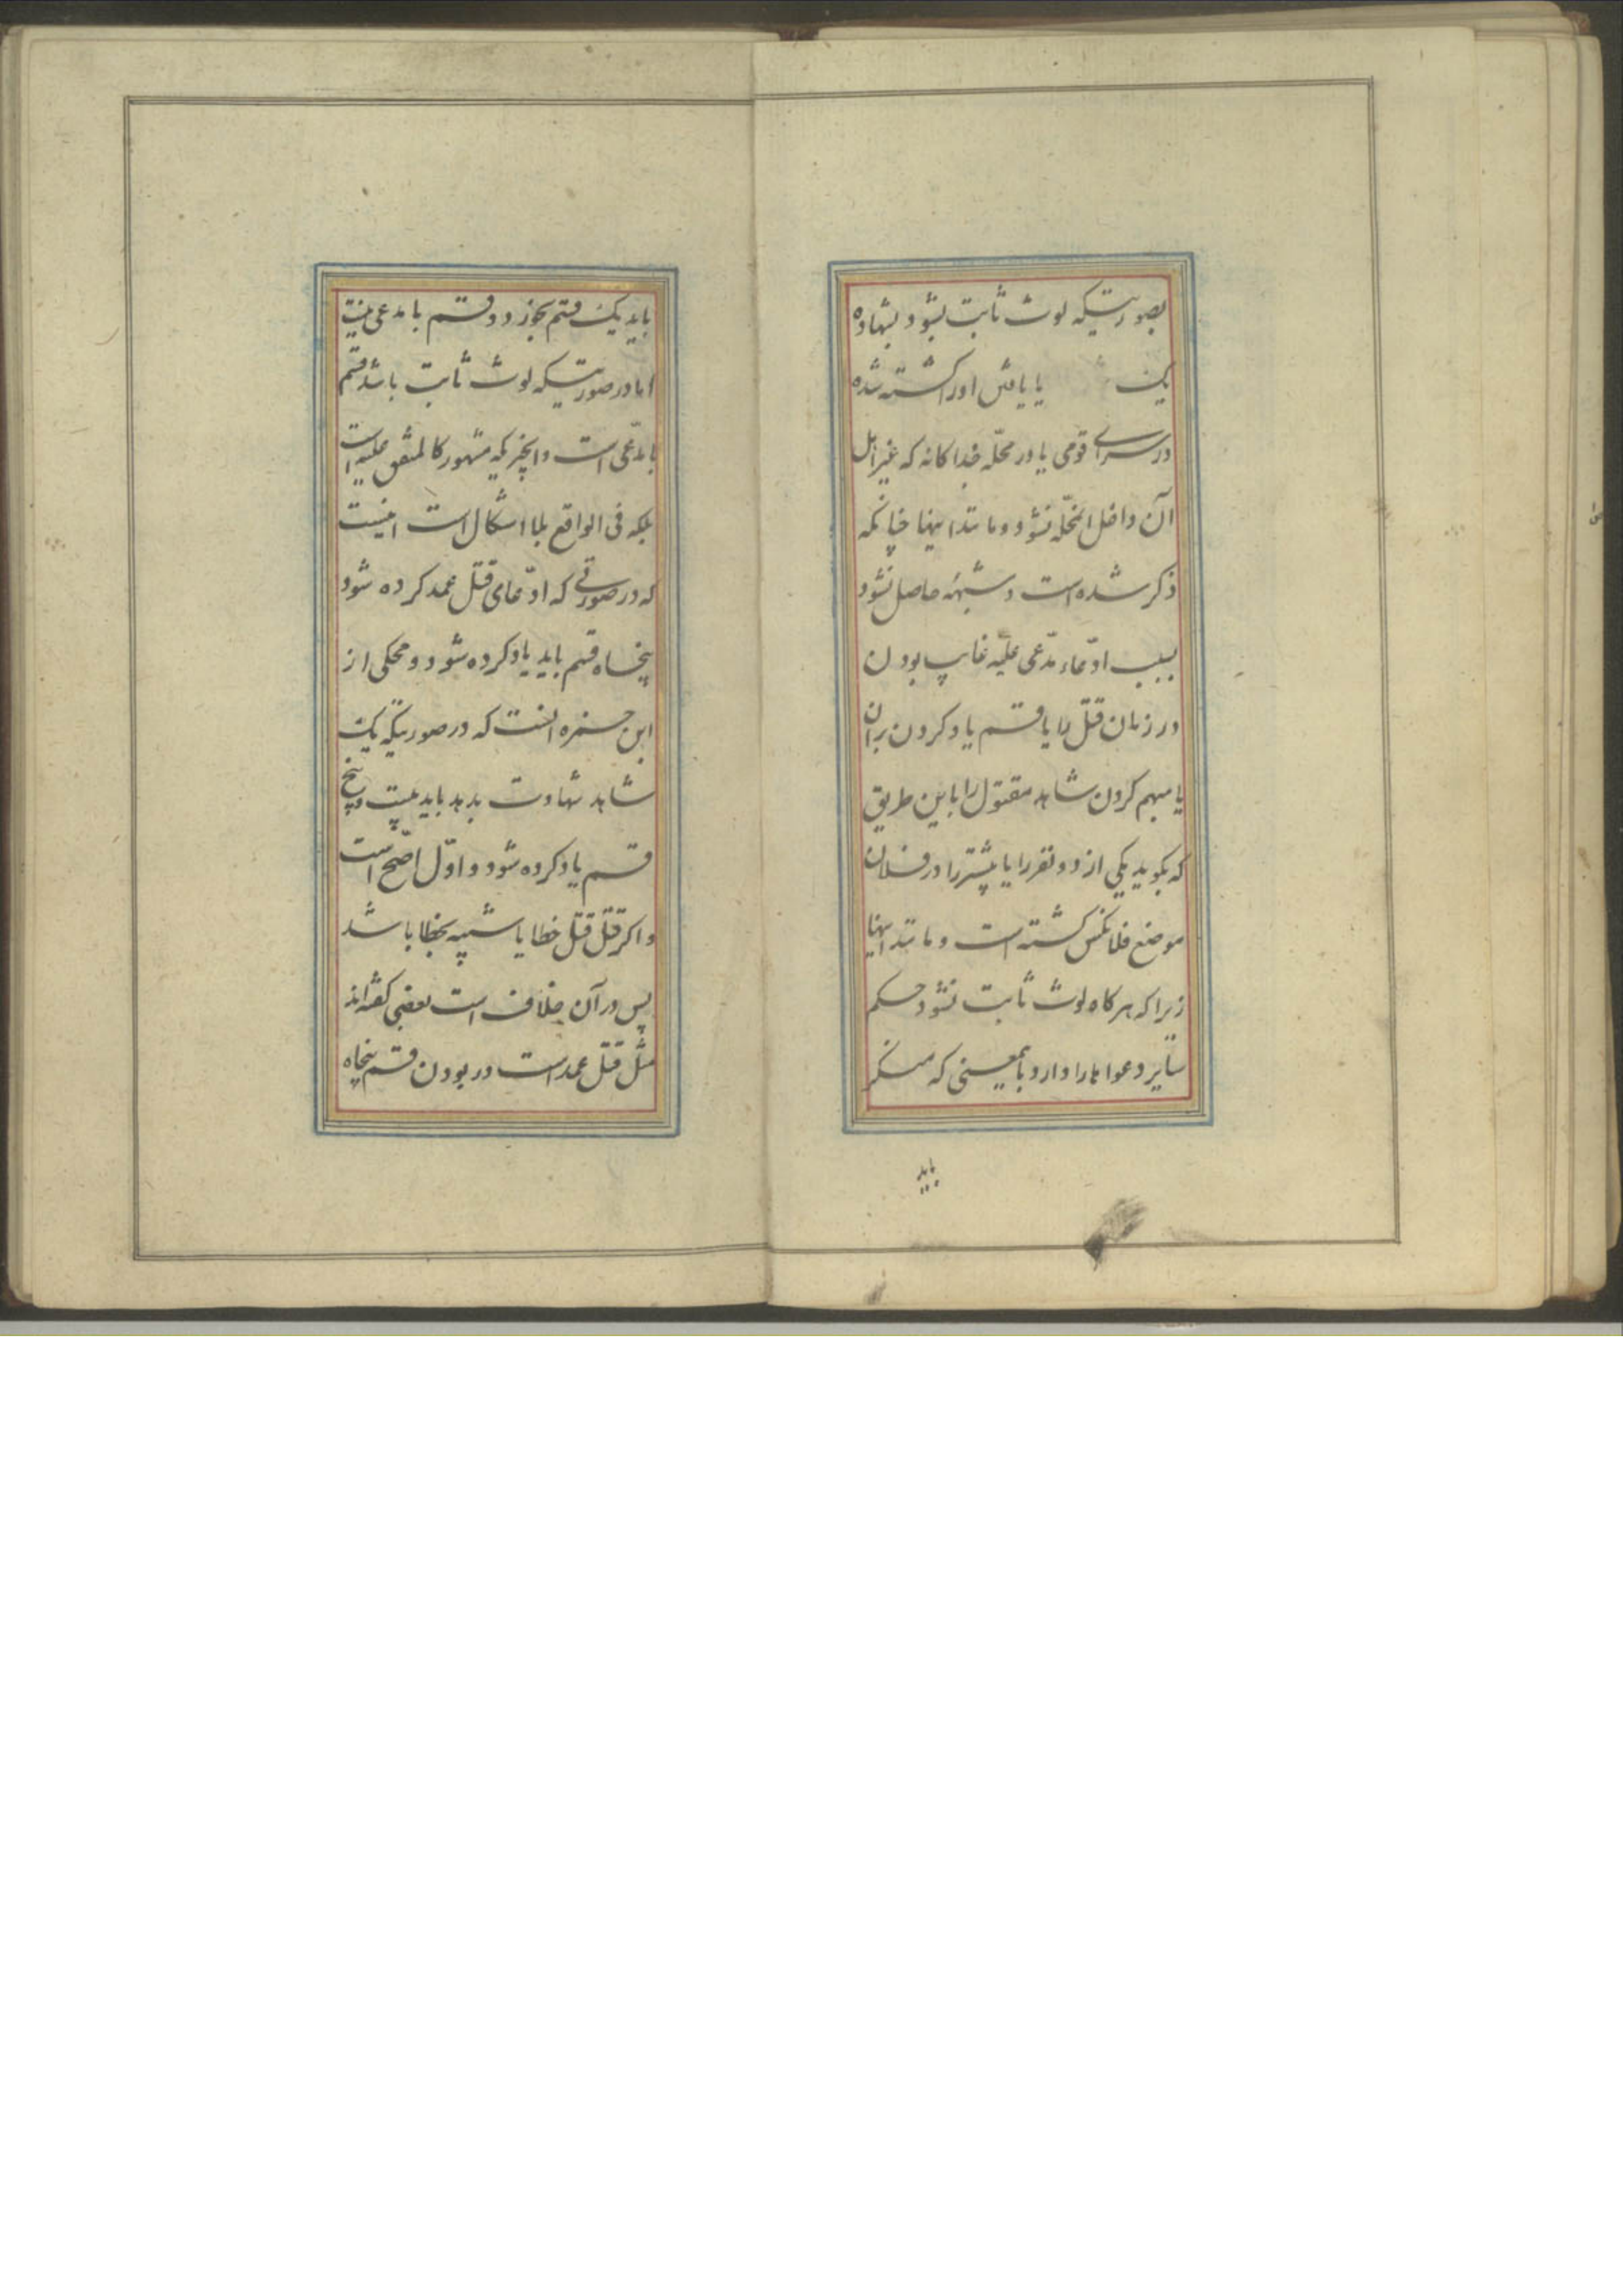 بصورتیکه لوث ثابت بشود بشهاده
یک یا یافتن او را کشته شده
در سرای قومی یا در محلّه جداکانه که غیر اهل
آن داخل انمحلّه نشود و مانند اینها چنانکه
ذکر شده است و شبهه حاصل نشود
بسبب ادّعاء مدّعی علیه غایب بودن
در زمان قتل را یا قسم یاد کردن بران
یا مبهم کردن شاهد مقتول را باین طریق
که بکوید یکی از دو نفر را یا بیشتر را در فلان
موضع فلانکس کشته است و مانند اینها
زیرا که هرکاه لوث ثابت نشود حکم
سایر دعواها را دارد بامعینی که منکر
باید
باید یک قسم بخورد و قسم با مدعی نیست
اما در صورتیکه لوث ثابت باشد قسم
با مدّعی است و انچیزیکه مشهور کالمتفق علیه است
بلکه فی الواقع بلا اشکال است اینست
که در صورتی که ادّعای قتل عمد کرده شود
پنجاه قسم باید یاد کرده شود و محکی از
ابن حمزه انست که در صورتیکه یک
شاهد شهادت بدهد باید بیست و پنج
قسم یاد کرده شود و اوّل اصّح است
و اکر قتل قتل خطا یا شبیه بخطا باشد
پس در آن خلاف است بعضی کفته‌اند
مثل قتل عمد است در بودن قسم پنجاه